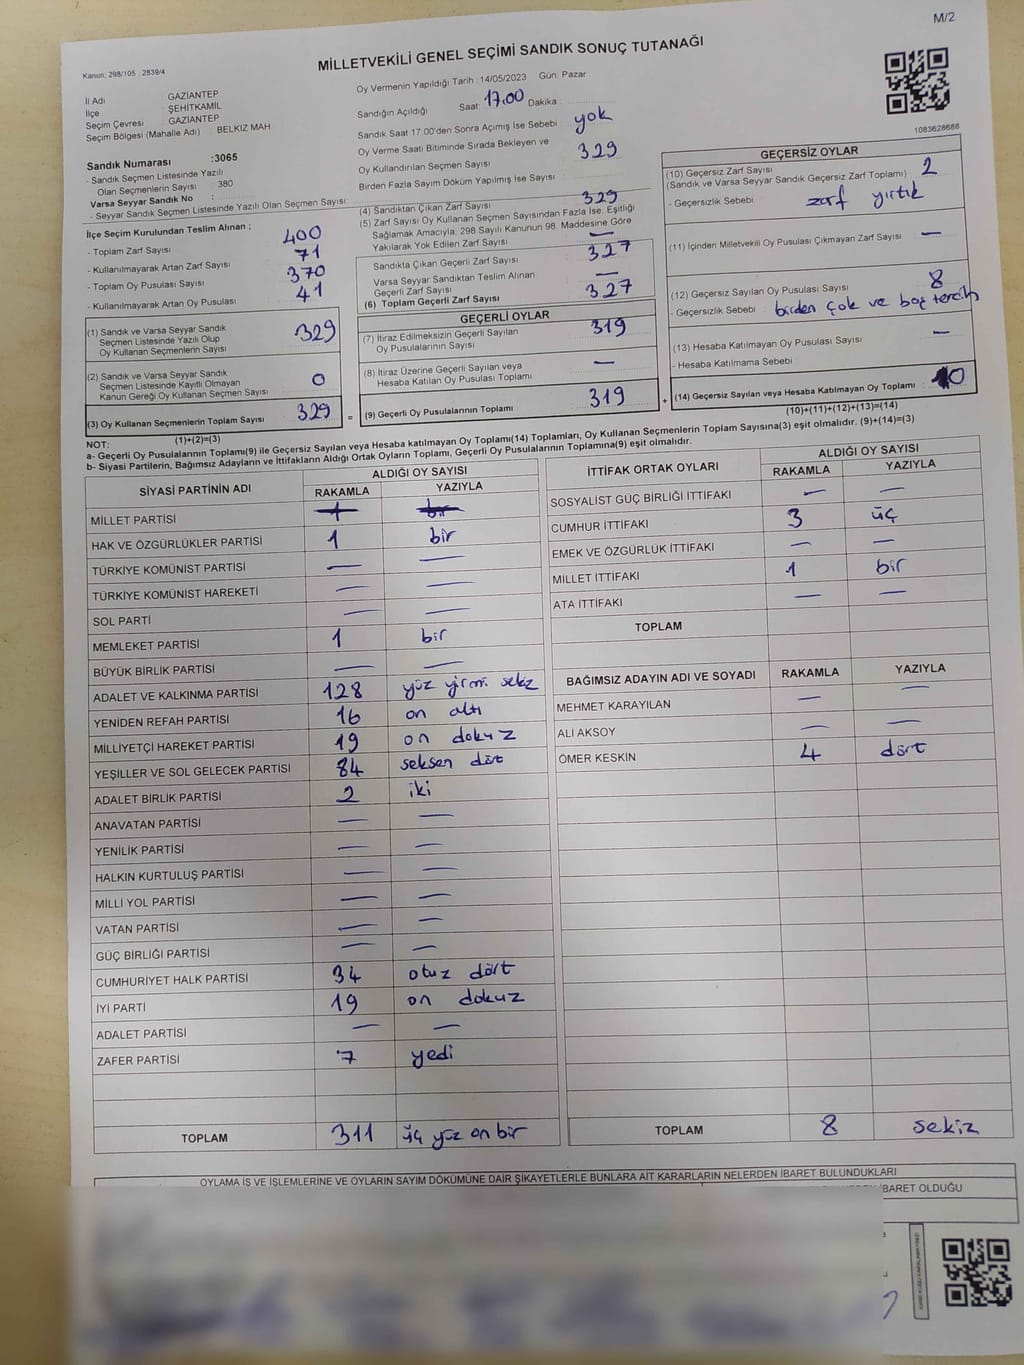 M/2
MİLLETVEKİLİ GENEL SEÇİMİ SANDIK SONUÇ TUTANAĞI
Kanun: 298/105 , 2839/4
İl Adı : GAZİANTEP
İlçe : ŞEHİTKAMİL
Seçim Çevresi : GAZİANTEP
Seçim Bölgesi (Mahalle Adı) : BELKIZ MAH
Sandık Numarası :3065
- Sandık Seçmen Listesinde Yazılı
Olan Seçmenlerin Sayısı : 380
Varsa Seyyar Sandık No :
- Seyyar Sandık Seçmen Listesinde Yazılı Olan Seçmen Sayısı:
Oy Vermenin Yapıldığı Tarih :14/05/2023 Gün: Pazar
Sandığın Açıldığı Saat: 17.00 Dakika :
Sandık Saat 17:00'den Sonra Açımış İse Sebebi yok
Oy Verme Saati Bitiminde Sırada Bekleyen ve
Oy Kullandırılan Seçmen Sayısı 329
Birden Fazla Sayım Döküm Yapılmış İse Sayısı :
1083628688
İlçe Seçim Kurulundan Teslim Alınan ;
- Toplam Zarf Sayısı 400
- Kullanılmayarak Artan Zarf Sayısı 71
- Toplam Oy Pusulası Sayısı 370
- Kullanılmayarak Artan Oy Pusulası 41
(1) Sandık ve Varsa Seyyar Sandık
Seçmen Listesinde Yazılı Olup
Oy Kullanan Seçmenlerin Sayısı 329
(2) Sandık ve Varsa Seyyar Sandık
Seçmen Listesinde Kayıtlı Olmayan
Kanun Gereği Oy Kullanan Seçmen Sayısı 0
(3) Oy Kullanan Seçmenlerin Toplam Sayısı 329 =
(1)+(2)=(3)
(4) Sandıktan Çıkan Zarf Sayısı 329
(5) Zarf Sayısı Oy Kullanan Seçmen Sayısından Fazla İse, Eşitliği
Sağlamak Amacıyla, 298 Sayılı Kanunun 98. Maddesine Göre
Yakılarak Yok Edilen Zarf Sayısı —
Sandıkta Çıkan Geçerli Zarf Sayısı 327
Varsa Seyyar Sandıktan Teslim Alınan
Geçerli Zarf Sayısı —
(6) Toplam Geçerli Zarf Sayısı 327
GEÇERLİ OYLAR
(7) İtiraz Edilmeksizin Geçerli Sayılan
Oy Pusulalarının Sayısı 319
(8) İtiraz Üzerine Geçerli Sayılan veya
Hesaba Katılan Oy Pusulası Toplamı —
(9) Geçerli Oy Pusulalarının Toplamı 319 +
GEÇERSİZ OYLAR
(10) Geçersiz Zarf Sayısı
(Sandık ve Varsa Seyyar Sandık Geçersiz Zarf Toplamı) 2
- Geçersizlik Sebebi : zarf yırtık
(11) İçinden Milletvekili Oy Pusulası Çıkmayan Zarf Sayısı —
(12) Geçersiz Sayılan Oy Pusulası Sayısı 8
- Geçersizlik Sebebi : birden çok ve boş tercih
(13) Hesaba Katılmayan Oy Pusulası Sayısı —
- Hesaba Katılmama Sebebi
(14) Geçersiz Sayılan veya Hesaba Katılmayan Oy Toplamı : 10
(10)+(11)+(12)+(13)=(14)
NOT:
a- Geçerli Oy Pusulalarının Toplamı(9) ile Geçersiz Sayılan veya Hesaba katılmayan Oy Toplamı(14) Toplamları, Oy Kullanan Seçmenlerin Toplam Sayısına(3) eşit olmalıdır. (9)+(14)=(3)
b- Siyasi Partilerin, Bağımsız Adayların ve İttifakların Aldığı Ortak Oyların Toplamı, Geçerli Oy Pusulalarının Toplamına(9) eşit olmalıdır.
SİYASİ PARTİNİN ADI ALDIĞI OY SAYISI
RAKAMLA YAZIYLA
MİLLET PARTİSİ 1 bir
HAK VE ÖZGÜRLÜKLER PARTİSİ 1 bir
TÜRKİYE KOMÜNİST PARTİSİ — —
TÜRKİYE KOMÜNİST HAREKETİ — —
SOL PARTİ — —
MEMLEKET PARTİSİ 1 bir
BÜYÜK BİRLİK PARTİSİ — —
ADALET VE KALKINMA PARTİSİ 128 yüz yirmi sekiz
YENİDEN REFAH PARTİSİ 16 on altı
MİLLİYETÇİ HAREKET PARTİSİ 19 on dokuz
YEŞİLLER VE SOL GELECEK PARTİSİ 84 seksen dört
ADALET BİRLİK PARTİSİ 2 iki
ANAVATAN PARTİSİ — —
YENİLİK PARTİSİ — —
HALKIN KURTULUŞ PARTİSİ — —
MİLLİ YOL PARTİSİ — —
VATAN PARTİSİ — —
GÜÇ BİRLİĞİ PARTİSİ — —
CUMHURİYET HALK PARTİSİ 34 otuz dört
İYİ PARTİ 19 on dokuz
ADALET PARTİSİ — —
ZAFER PARTİSİ 7 yedi
TOPLAM 311 üç yüz on bir
İTTİFAK ORTAK OYLARI ALDIĞI OY SAYISI
RAKAMLA YAZIYLA
SOSYALIST GÜÇ BİRLİĞİ İTTİFAKI — —
CUMHUR İTTİFAKI 3 üç
EMEK VE ÖZGÜRLÜK İTTİFAKI — —
MİLLET İTTİFAKI 1 bir
ATA İTTİFAKI — —
TOPLAM
BAĞIMSIZ ADAYIN ADI VE SOYADI RAKAMLA YAZIYLA
MEHMET KARAYILAN — —
ALI AKSOY — —
ÖMER KESKİN 4 dört
TOPLAM 8 sekiz
OYLAMA İŞ VE İŞLEMLERİNE VE OYLARIN SAYIM DÖKÜMÜNE DAİR ŞİKAYETLERLE BUNLARA AİT KARARLARIN NELERDEN İBARET BULUNDUKLARI
İBARET OLDUĞU